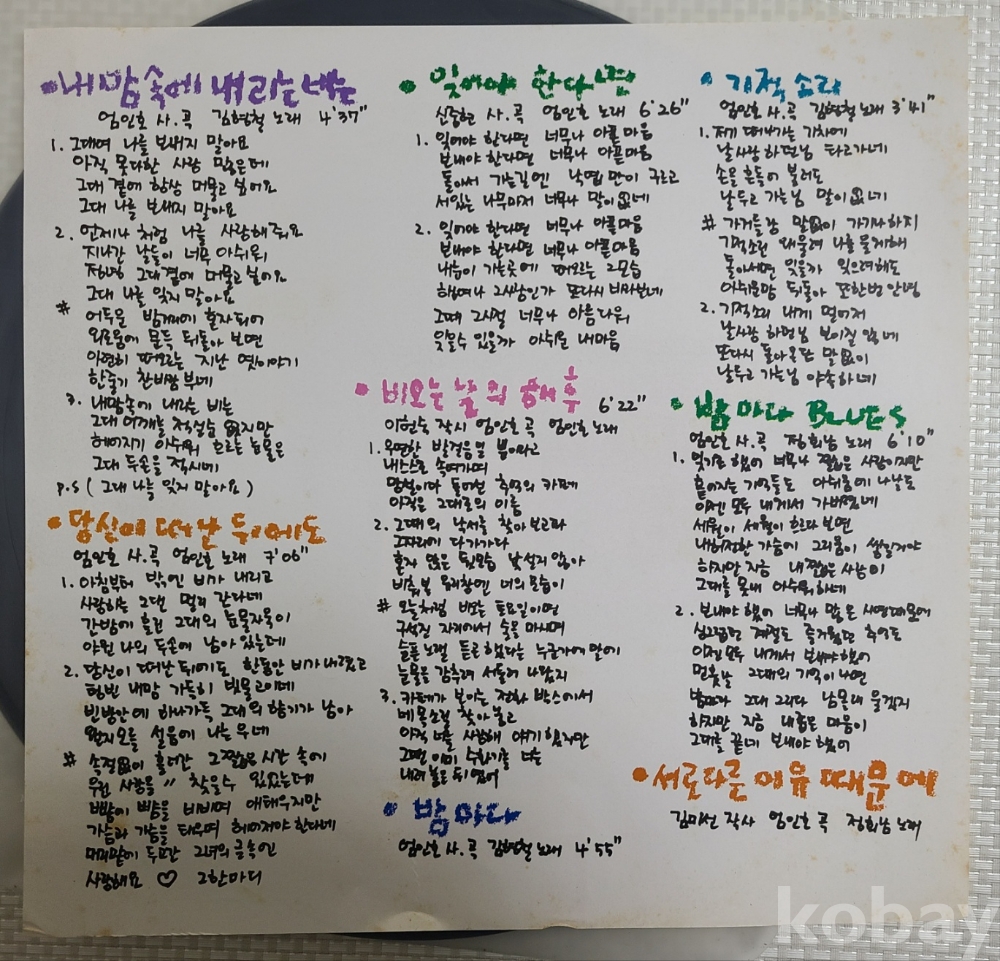 •내맘속에 내리는 비는
엄인호 사.곡 김형철 노래 4'37"
1. 그대여 나를 보내지 말아요
아직 못다한 사랑 많은데
그대 곁에 항상 머물고 싶어요
그대 나를 보내지 말아요
2. 언제나 처럼 나를 사랑해주요
지나간 날들이 너무 아쉬워
저하늘 그대곁에 머물고 싶어요
그대 나를 잊지 말아요
# 어두운 밤거리에 혼자되어
외로움에 문득 뒤돌아 보면
아련히 떠오르는 지난 옛이야기
한줄기 찬바람 부네
3. 내맘속에 내리는 비는
그대 어깨를 적실순 없지만
헤어지기 아쉬워 흐르는 눈물은
그대 두손을 적시네
P.S ( 그대 나를 잊지 말아요 )
•당신이 떠난 뒤에도
엄인호 사.곡 엄인호 노래 7'06"
1. 아침부터 밖엔 비가 내리고
사랑하는 그댄 멀리 간다네
간밤에 흘린 그대의 눈물자욱이
야윈 나의 두손에 남아 있는데
2. 당신이 떠난 뒤에도 한동안 비가 내렸고
텅빈 내맘 가득히 빗물 고이네
빈방안에 하나가득 그대의 향기가 남아
왠지모를 설움에 나는 우네
# 속절없이 흘러간 그 짧은 시간 속에
우린 사랑을 〃 찾을수 있었는데
뺨이 뺨을 비비며 애태우지만
가슴과 가슴을 태우며 헤어져야 한다네
머리맡에 두고간 그녀의 글속엔
사랑해요 ♡ 그한마디
•잊어야 한다면
신중현 사.곡 엄인호 노래 6'26"
1. 잊어야 한다면 너무나 아픈마음
보내야 한다면 너무나 아픈마음
돌아서 가는길엔 낙엽만이 구르고
서있는 나무마저 너무나 말이없네
2. 잊어야 한다면 너무나 아픈마음
보내야 한다면 너무나 아픈마음
내눈이 가는곳에 떠오르는 그모습
행여나 그사람인가 또다시 바라보네
그때 그시절 너무나 아름다워
잊을수 있을까 아쉬운 내마음
•비오는 날의 해후 6'22"
이현수 작시 엄인호 곡 엄인호 노래
1. 우연한 발걸음일 뿐이라고
내 스스로 속여가며
망설이다 들어선 추억의 카페
아직은 그대로의 이름
2. 그대의 낙서를 찾아 보고파
그자리에 다가가다
혼자 앉은 뒷모습 낯설지 않아
비춰본 유리창엔 너의 모습이
# 오늘처럼 비오는 토요일이면
구석진 자리에서 술을 마시며
슬픈 노랠 듣곤 했다는 누군가에 말에
눈물을 감추려 서둘러 나왔지
3. 카페가 보이는 전화 박스에서
메모소릴 찾아 놓고
아직 너를 사랑해 얘기 했지만
그땐 이미 수화기를 나는
내려 놓은 뒤 였어
•밤마다
엄인호 사.곡 김형철 노래 4'55"
•기적소리
엄인호 사.곡 김형철 노래 3'41"
1. 저기 떠나가는 기차에
날사랑 하던님 타고가네
손을 흔들어 불러도
날두고 가는님 말이없네
# 가거들랑 말없이 가기나하지
기적소린 왜울려 나를 울게해
돌아서면 잊을까 잊으려해도
아쉬운맘 뒤돌아 또한번 안녕
2. 기적소리 내게 멀어져
날사랑 하던님 보이질 않네
또다시 돌아온단 말없이
날두고 가는님 야속하네
•밤마다 BLUES
엄인호 사.곡 정희남 노래 6'10"
1. 잊기로 했어 너무나 짧은 사랑이지만
흩어지는 기억들도 아쉬움에 나날도
이젠 모두 내게서 가버렸네
세월이 세월이 흐르다 보면
내허전한 가슴에 그리움이 쌓일거야
하지만 지금 내 짧은 사랑이
그대를 못내 아쉬워하네
2. 보내야 했어 너무나 많은 사연때문에
싱그럽던 계절도 즐거웠던 추억도
이젠 모두 내게서 보내야 했어
먼훗날 그대의 기억이 나면
밤마다 그대 그리다 남몰래 울겠지
하지만 지금 내 슬픈 마음이
그대를 끝내 보내야 했어
•서로다른 이유 때문에
김미선 작사 엄인호 곡 정희남 노래
kobay